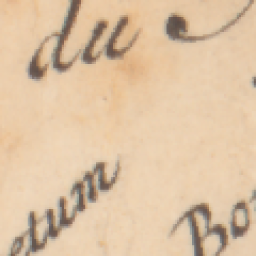 du
etum
Bo